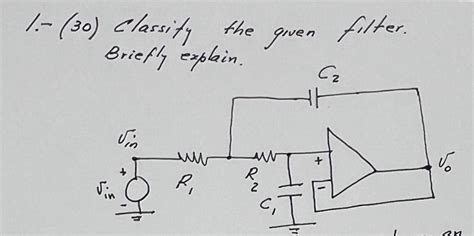 1.- (30) Classify the given filter.
Briefly explain.
C2
vin
+
vin
-
R1
R2
C1
+
-
vo